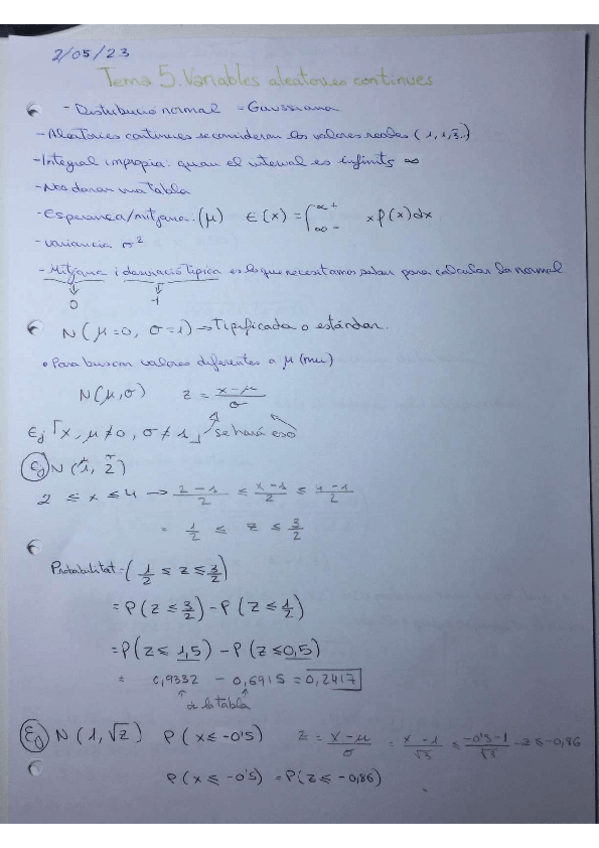 2/05/23
Tema 5. Variables aleatories continues
- Distribució normal = Gaussiana
- Aleatories continues se consideran los valores reales (1, 1,3̄..)
- Integral impropia: quan el interval es infinits ∞
- Nos daran una tabla
- Esperança/mitjana: (μ) E(x) = ∫ ∞+ ∞- x f(x) dx
- variancia σ²
- Mitjana i desviació típica es lo que necesitamos saber para calcular la normal
0 1
N(μ=0, σ=1) → Tipificada o estándar.
• Para buscar valores diferentes a μ (mu)
N(μ,σ) z = x-μ / σ
Ej ⌈x, μ≠0, σ≠1⌋ se hará eso
Ej N(1, 2)
2 ≤ x ≤ 4 → 2-1 / 2 ≤ x-1 / 2 ≤ 4-1 / 2
= 1/2 ≤ z ≤ 3/2
Probabilitat = (1/2 ≤ z ≤ 3/2)
= P(z ≤ 3/2) - P(z ≤ 1/2)
= P(z ≤ 1,5) - P(z ≤ 0,5)
= 0,9332 - 0,6915 = 0,2417
de la tabla
Ej N(1, √2) P(x ≤ -0'5) z = x-μ / σ = x-1 / √3 ≤ -0'5-1 / √3 → z ≤ -0,86
P(x ≤ -0'5) = P(z ≤ -0,86)